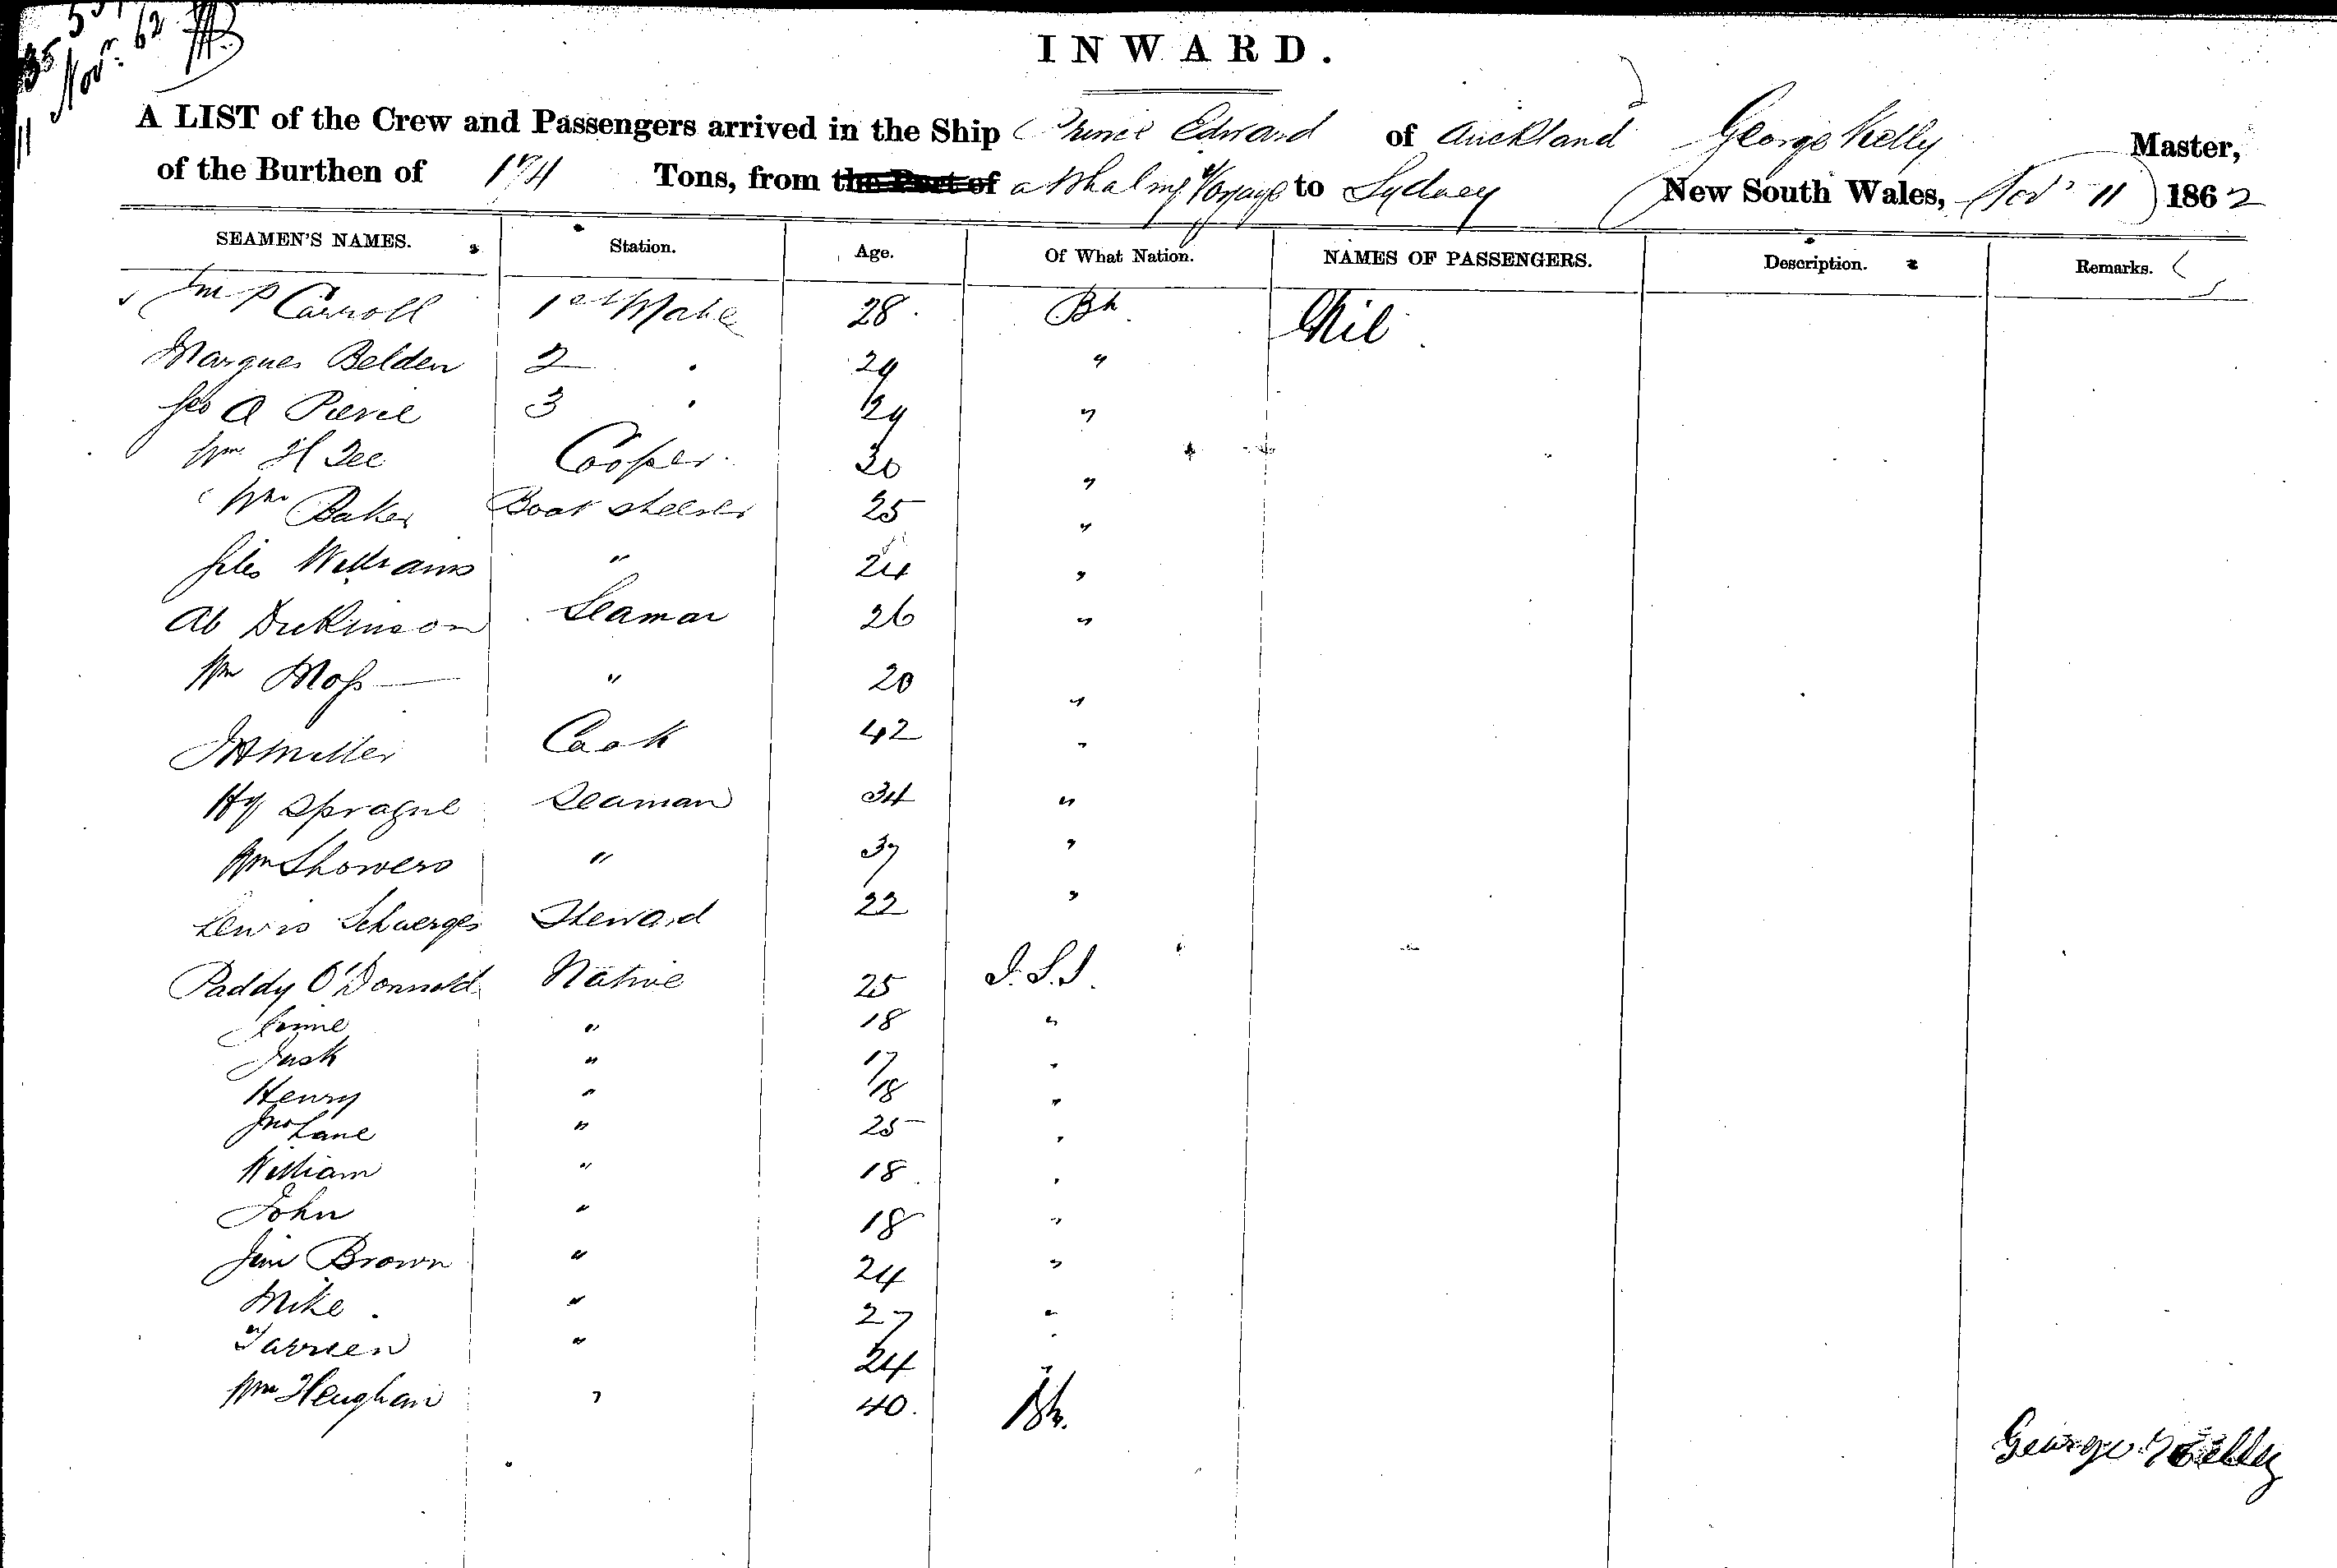 11 Nov. 62
INWARD.
A LIST of the Crew and Passengers arrived in the Ship Prince Edward of Auckland George Kelly Master,
of the Burthen of 174 Tons, from the Port of a Whaling Voyage to Sydney New South Wales, Nov 11 1862
SEAMEN'S NAMES. Station. Age. Of What Nation. NAMES OF PASSENGERS. Description. Remarks.
P Carroll 1st Mate 28 Bh Nil
Marques Belden 2 " 29 "
Geo A Pierie 3 " 29 "
Wm H Tee Cooper 30 "
Wm Baker Boat steerer 25 "
Giles Williams " 24 "
Ab Dickinson Seaman 26 "
Wm Moss " 20 "
JH Miller Cook 42 "
Hy Sprague Seaman 34 "
Wm Showers " 37 "
Lewis Schuerges Steward 22 "
Paddy O'Donnold Native 25 I.S.I.
" 18 "
Jack " 17 "
Henry " 18 "
Jno Lane " 25 "
William " 18 "
John " 18 "
Jim Brown " 24 "
Mike " 27 "
Tarreen " 24 "
Wm Heughan " 40 Bh.
George Kelly